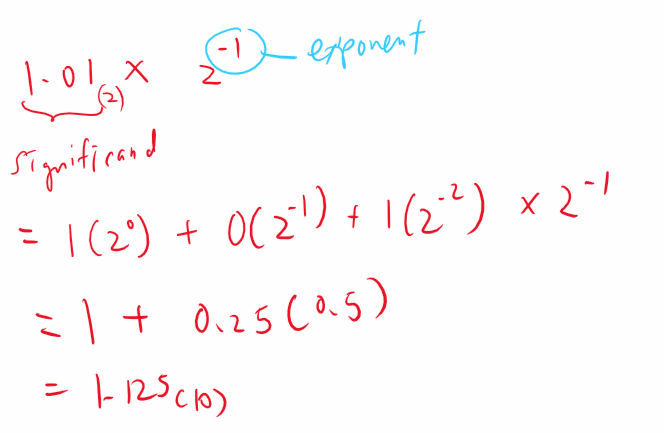 1.01₍₂₎ × 2⁻¹ exponent
significand
= 1(2⁰) + 0(2⁻¹) + 1(2⁻²) × 2⁻¹
= 1 + 0.25(0.5)
= 1.125₍₁₀₎